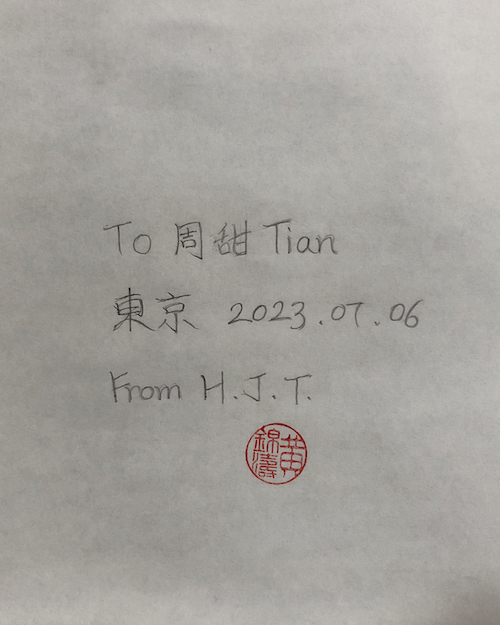 To 周甜 Tian
東京 2023.07.06
From H.J.T.
黄錦濤